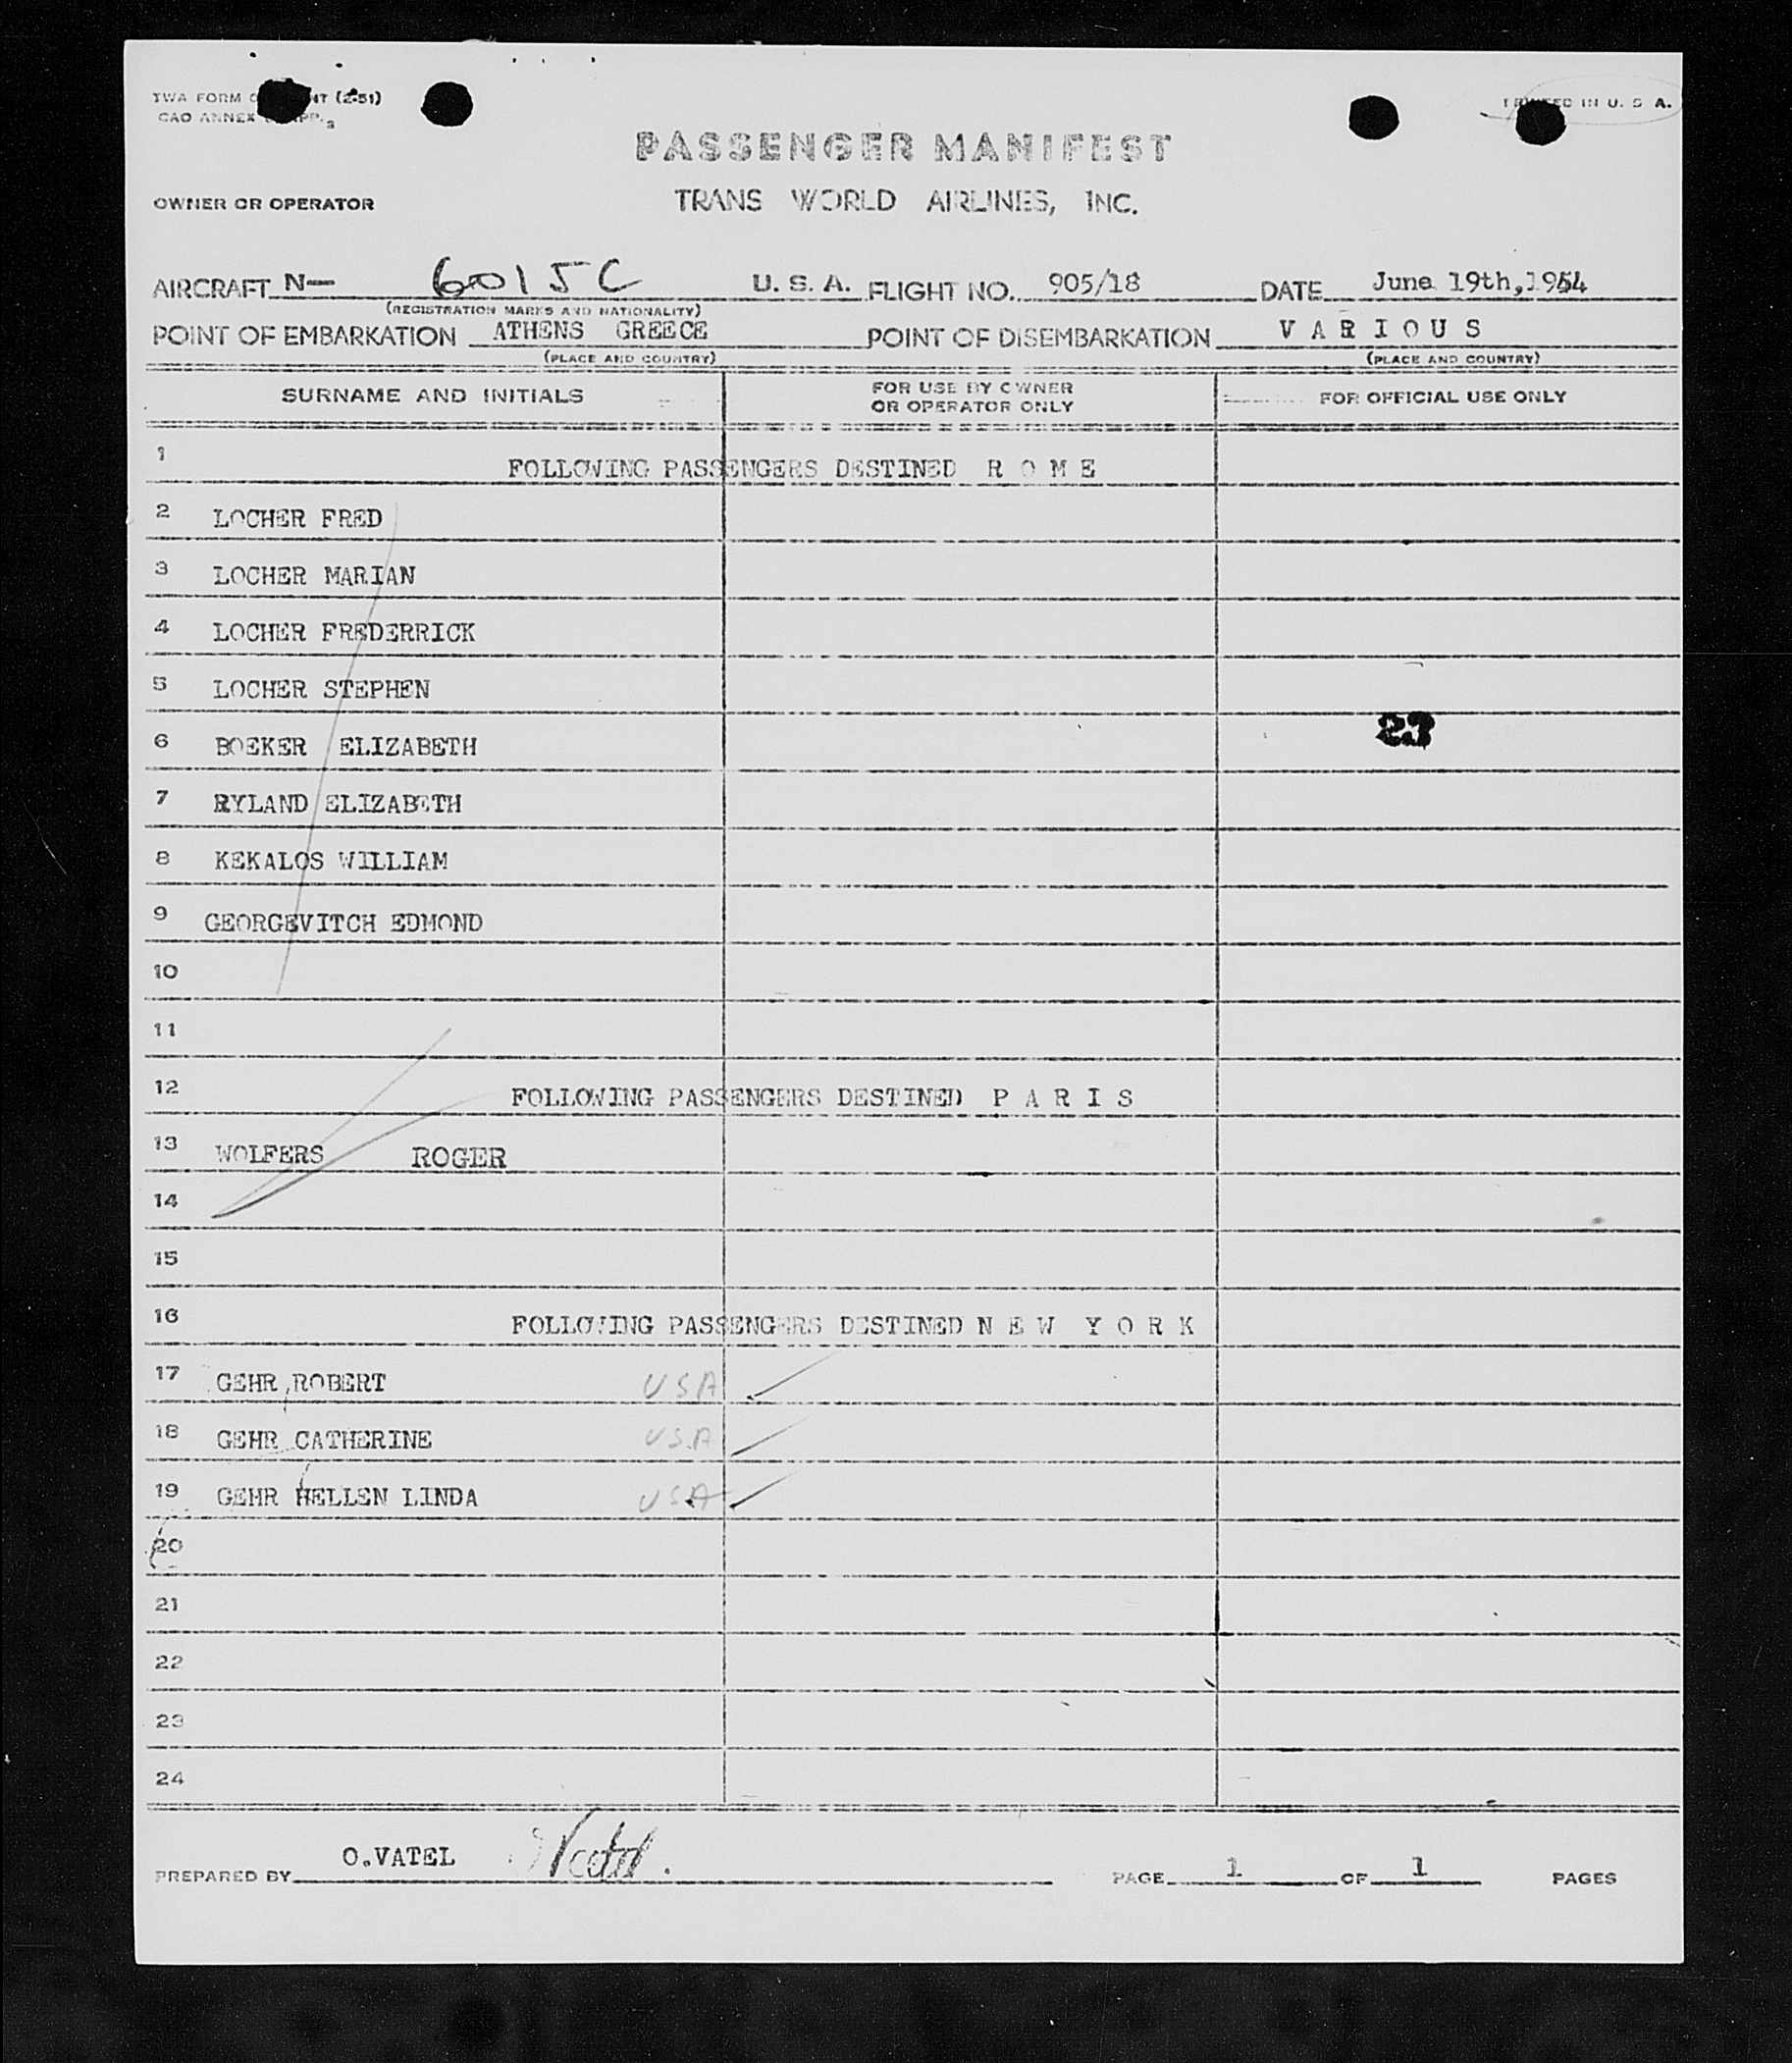 TWA FORM NT (2-51) PRINTED IN U. S. A.
CAO ANNEX APP. 3
PASSENGER MANIFEST
OWNER OR OPERATOR TRANS WORLD AIRLINES, INC.
AIRCRAFT N— 6015C U. S. A. FLIGHT NO. 905/18 DATE June 19th,1954
(REGISTRATION MARKS AND NATIONALITY)
POINT OF EMBARKATION ATHENS GREECE POINT OF DISEMBARKATION V A R I O U S
(PLACE AND COUNTRY) (PLACE AND COUNTRY)
SURNAME AND INITIALS FOR USE BY OWNER OR OPERATOR ONLY FOR OFFICIAL USE ONLY
1 FOLLOWING PASSENGERS DESTINED R O M E
2 LOCHER FRED
3 LOCHER MARIAN
4 LOCHER FREDERRICK
5 LOCHER STEPHEN
23
6 BOEKER ELIZABETH
7 RYLAND ELIZABETH
8 KEKALOS WILLIAM
9 GEORGEVITCH EDMOND
10
11
12 FOLLOWING PASSENGERS DESTINED P A R I S
13 WOLFERS ROGER
14
15
16 FOLLOWING PASSENGERS DESTINED N E W Y O R K
17 GEHR ROBERT USA
18 GEHR CATHERINE USA
19 GEHR HELLEN LINDA USA
20
21
22
23
24
PREPARED BY O.VATEL Vatel. PAGE 1 OF 1 PAGES